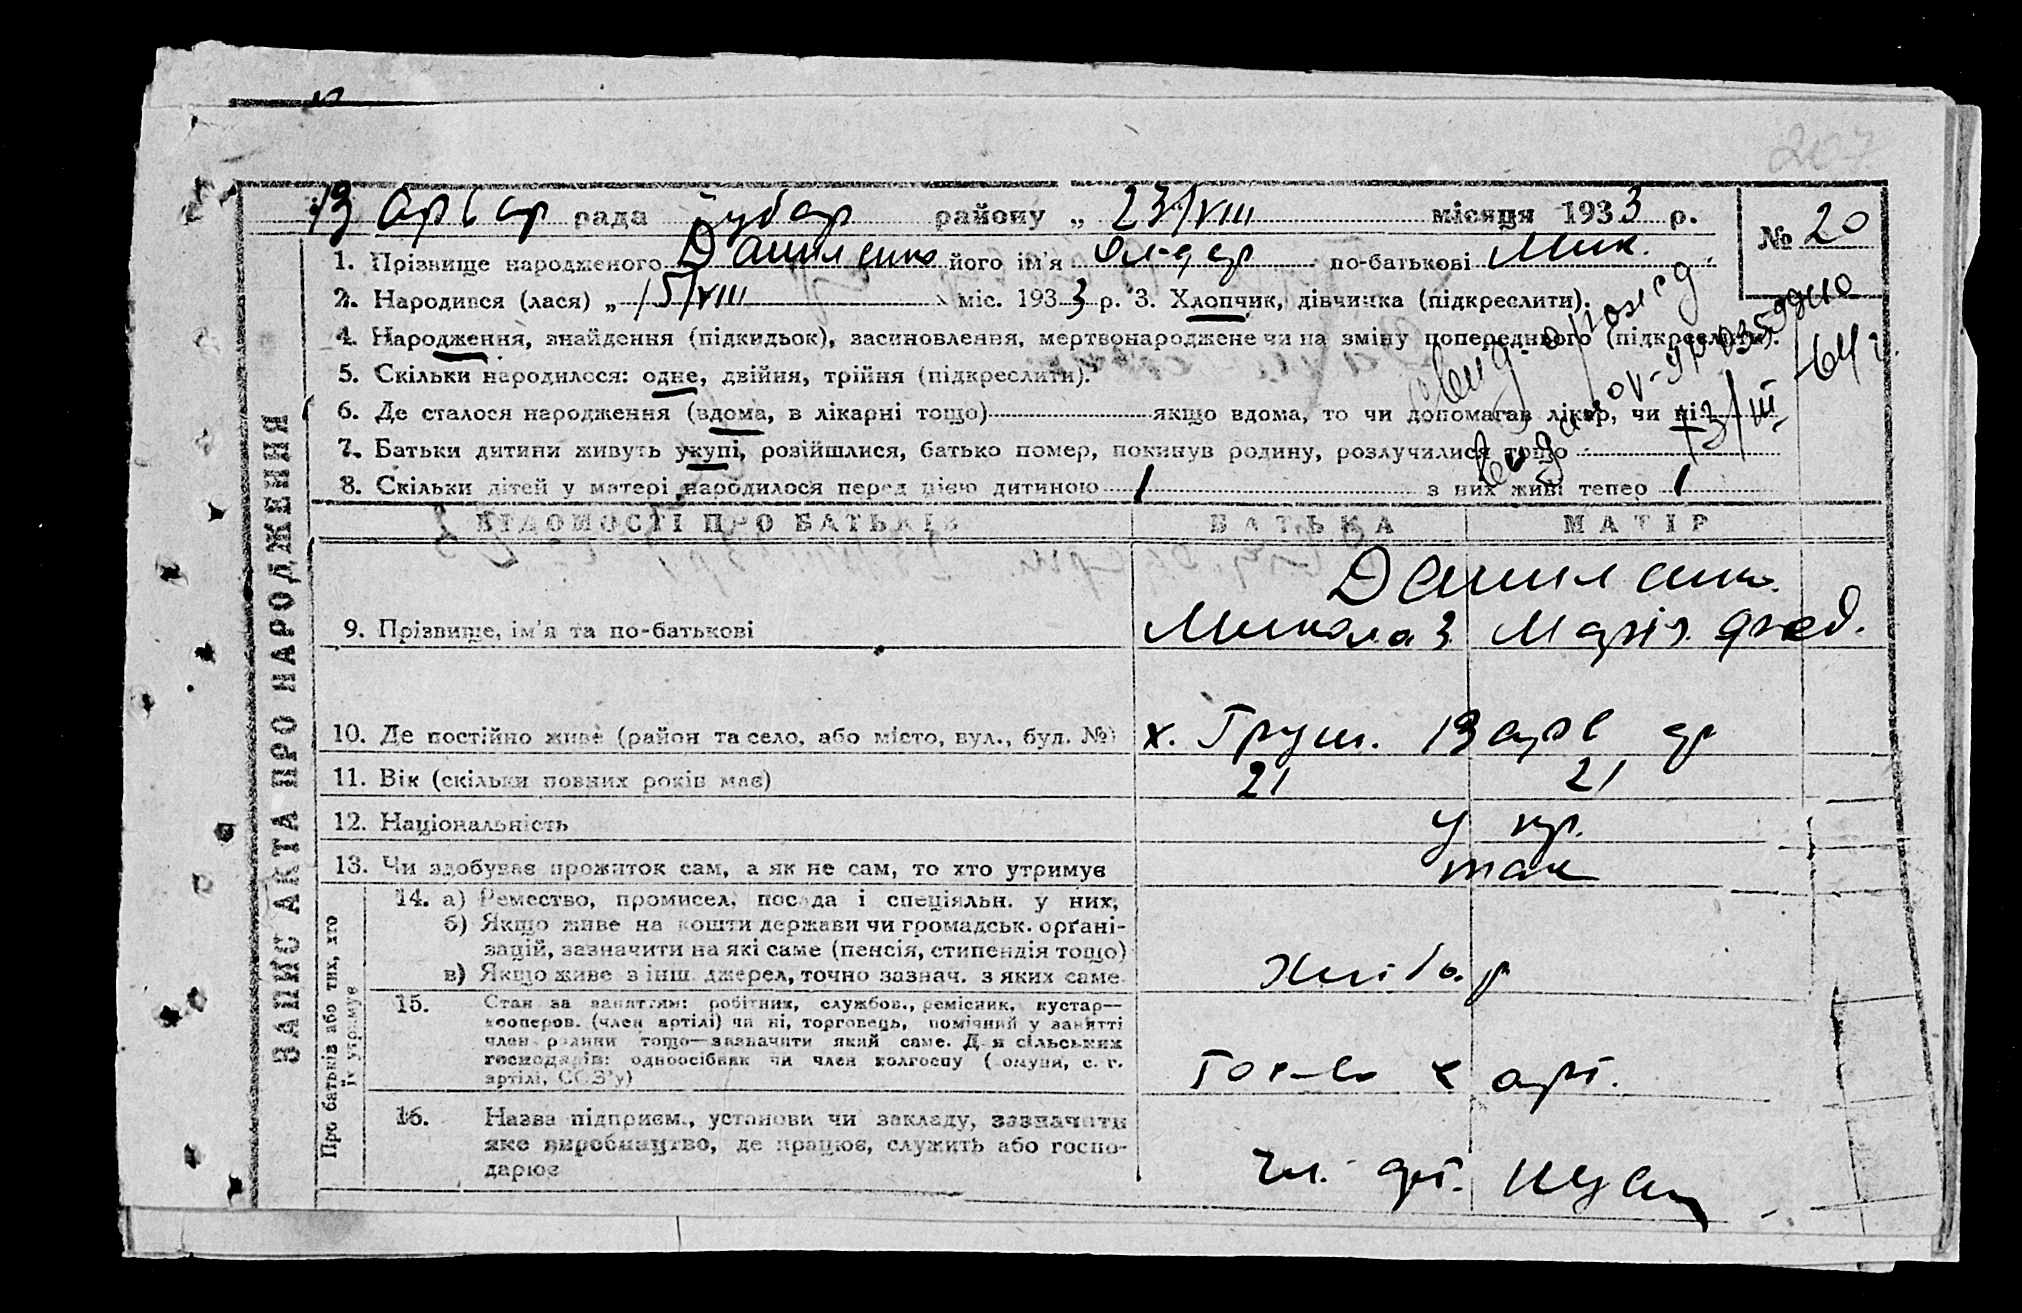 207
рада району „ 23/VIII місяця 1933 р.
№ 20
1. Прізвище народженого Даниленко його ім'я по-батькові Мик.
2. Народився (лася) „ 15/VIII міс. 1933 р. 3. Хлопчик, дівчинка (підкреслити).
4. Народження, знайдення (підкидьок), засиновлення, мертвонароджене чи на зміну попереднього (підкреслити).
5. Скільки народилося: одне, двійня, трійня (підкреслити).
6. Де сталося народження (вдома, в лікарні тощо) якщо вдома, то чи допомагав лікар, чи ні
7. Батьки дитини живуть укупі, розійшлися, батько помер, покинув родину, розлучилися тощо
8. Скільки дітей у матері народилося перед цією дитиною 1 з них живі тепер 1
13/III 64 г.
ЗАПИС АКТА ПРО НАРОДЖЕННЯ
ВІДОМОСТІ ПРО БАТЬКІВ БАТЬКА МАТІР
Даниленко
9. Прізвище, ім'я та по-батькові Микола З Марія Фед.
10. Де постійно живе (район та село, або місто, вул., буд. №) х. Груш. Варв
11. Вік (скільки повних років має) 21 21
12. Національність укр.
13. Чи здобуває прожиток сам, а як не сам, то хто утримує так
Про батьків або тих, хто їх утримує
14. а) Ремество, промисел, посада і спеціяльн. у них,
б) Якщо живе на кошти держави чи громадськ. орґані-
зацій, зазначити на які саме (пенсія, стипендія тощо)
в) Якщо живе з інш. джерел, точно зазнач. з яких саме Хлібор
15. Стан за заняттям: робітник, службов., ремісник, кустар—
кооперов. (член артілі) чи ні, торговець, помічний у занятті
член родини тощо—зазначити який саме. Для сільських
господарів: одноосібник чи член колгоспу (комуни, с.-г.
артілі, СОЗ'у) арт.
16. Назва підприєм., установи чи закладу, зазначити
яке виробництво, де працює, служить або госпо-
дарює чл. арт.